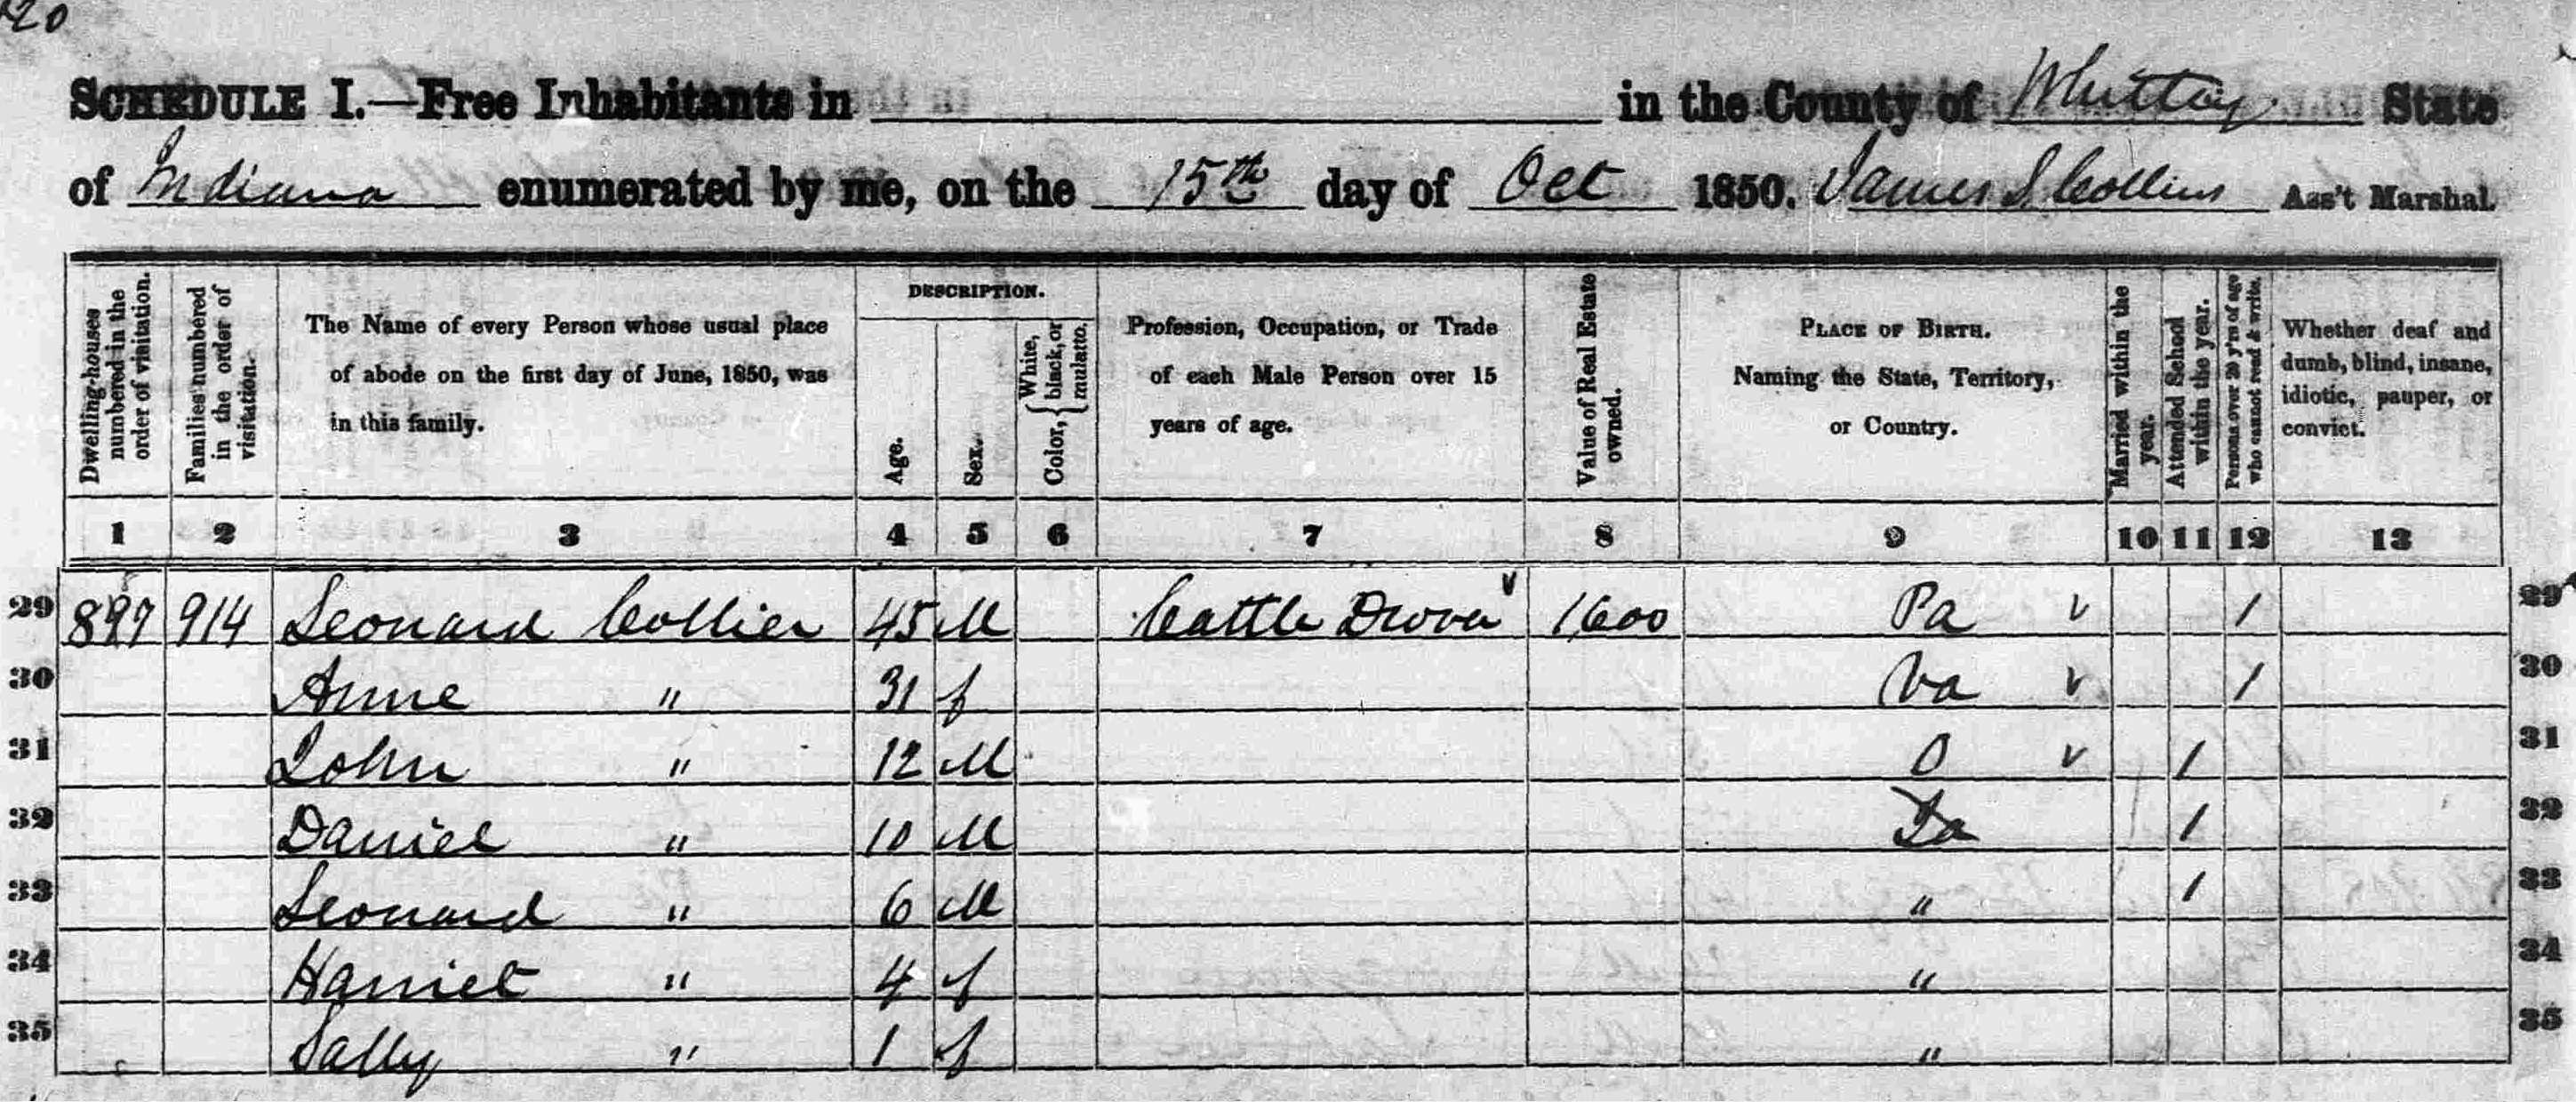 20
SCHEDULE I.—Free Inhabitants in in the County of Whitley State
of Indiana enumerated by me, on the 15th day of Oct 1850. James S Collins Ass't Marshal.
Dwelling-houses numbered in the order of visitation.
Families numbered in the order of visitation.
The Name of every Person whose usual place
of abode on the first day of June, 1850, was
in this family.
DESCRIPTION.
Age.
Sex.
Color, { White, black, or mulatto.
Profession, Occupation, or Trade
of each Male Person over 15
years of age.
Value of Real Estate owned.
PLACE OF BIRTH.
Naming the State, Territory,
or Country.
Married within the year.
Attended School within the year.
Persons over 20 y'rs of age who cannot read & write.
Whether deaf and
dumb, blind, insane,
idiotic, pauper, or
convict.
1 2 3 4 5 6 7 8 9 10 11 12 13
29 897 914 Leonard Collier 45 M Cattle Drover 1600 Pa 1 29
30 Anne " 31 f Va 1 30
31 John " 12 M O 1 31
32 Daniel " 10 M Ia 1 32
33 Leonard " 6 M " 1 33
34 Harriet " 4 f " 34
35 Sally " 1 f " 35